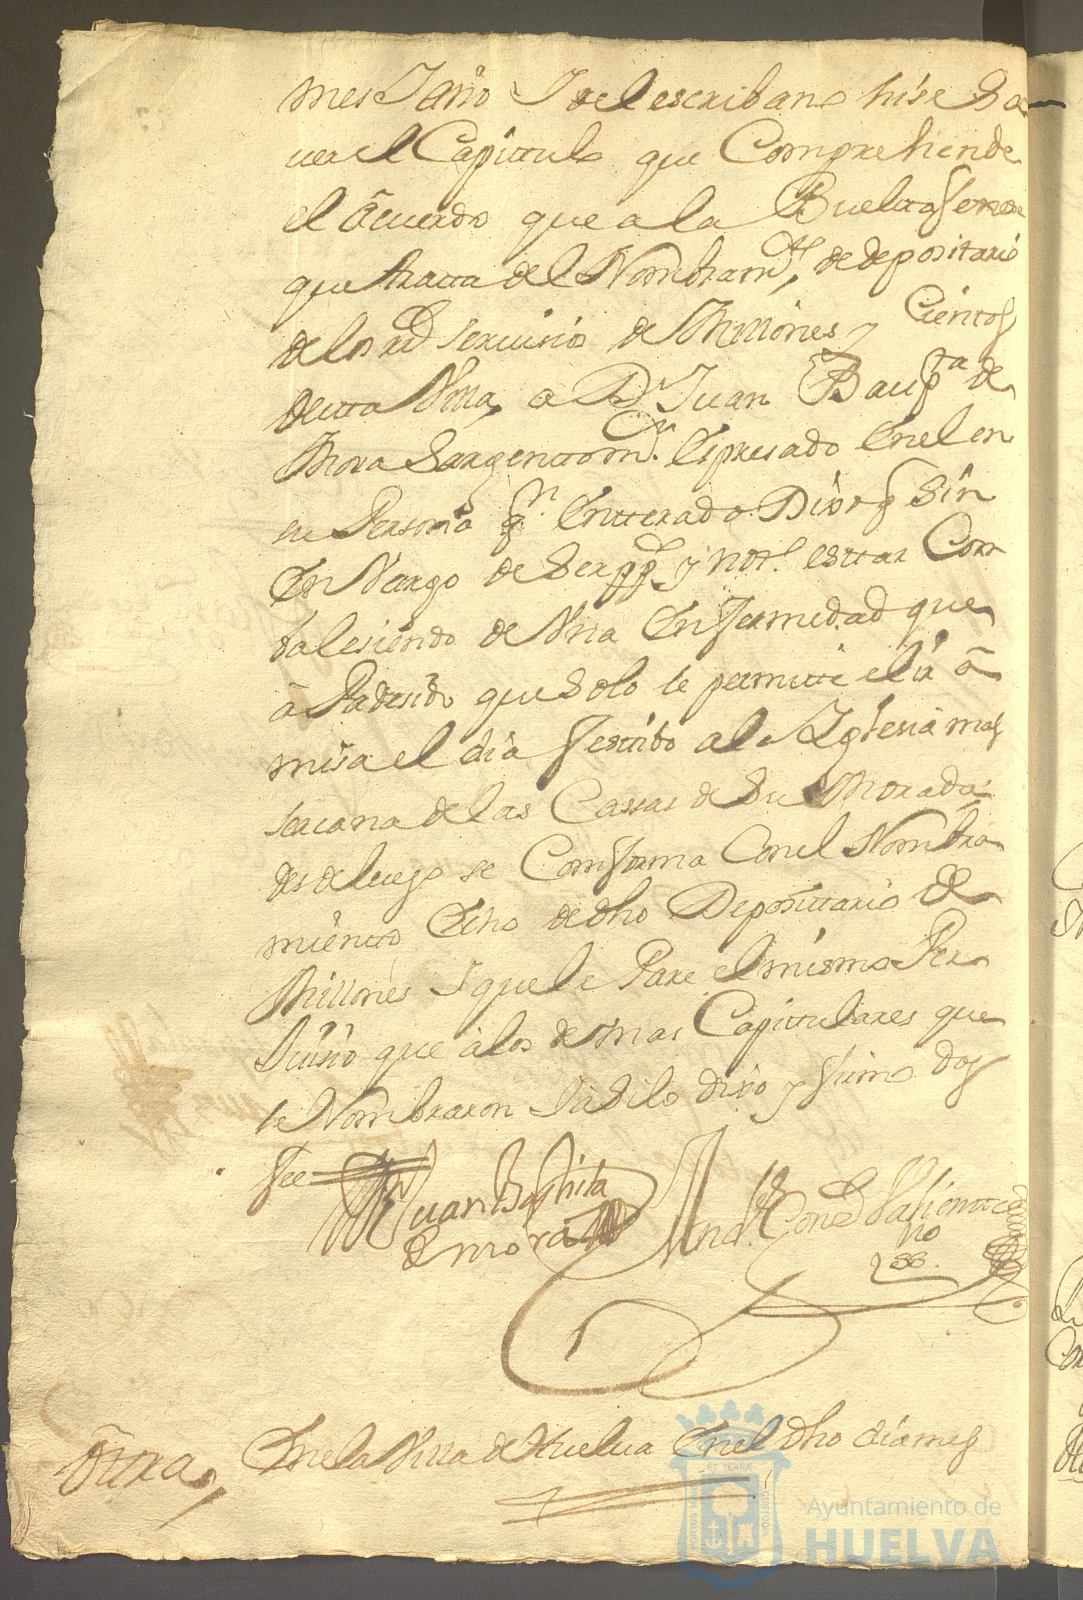 mes I año I el escribano hise sa
uer el Capittulo que Comprehende
el acuerdo que a la Buelta se
que tratta del Nombramto, de depositario
de los rs seruisio de Millones y Cientos
desta Villa, a Dn Juan Baupta de
Mora Sargentto mor. Espresado en el en
su Persona qn. Entterado Dixo q Sin
En Vargo de ser pp y nott. esttar Com
balesiendo de Vna Enfermedad que
a Padesido que solo le permitte el ir a
misa el dia festibo a la Yglesia mas
sercana de las Cassas de su Morada:
desde luego se Comforma Con el Nombra
miento Echo de dho Deposittario de
Millones I que le Pare el mismo Per
Juisio que a los de mas Capittulares que
le Nombraron I asi lo dixo y firmo doy
fee
Juan Baptista
de mora
Ands Gonz Valientte
no
ss.
Ottra,
En la Villa de Huelua En el dho dia mes
Ayuntamiento de
HUELVA